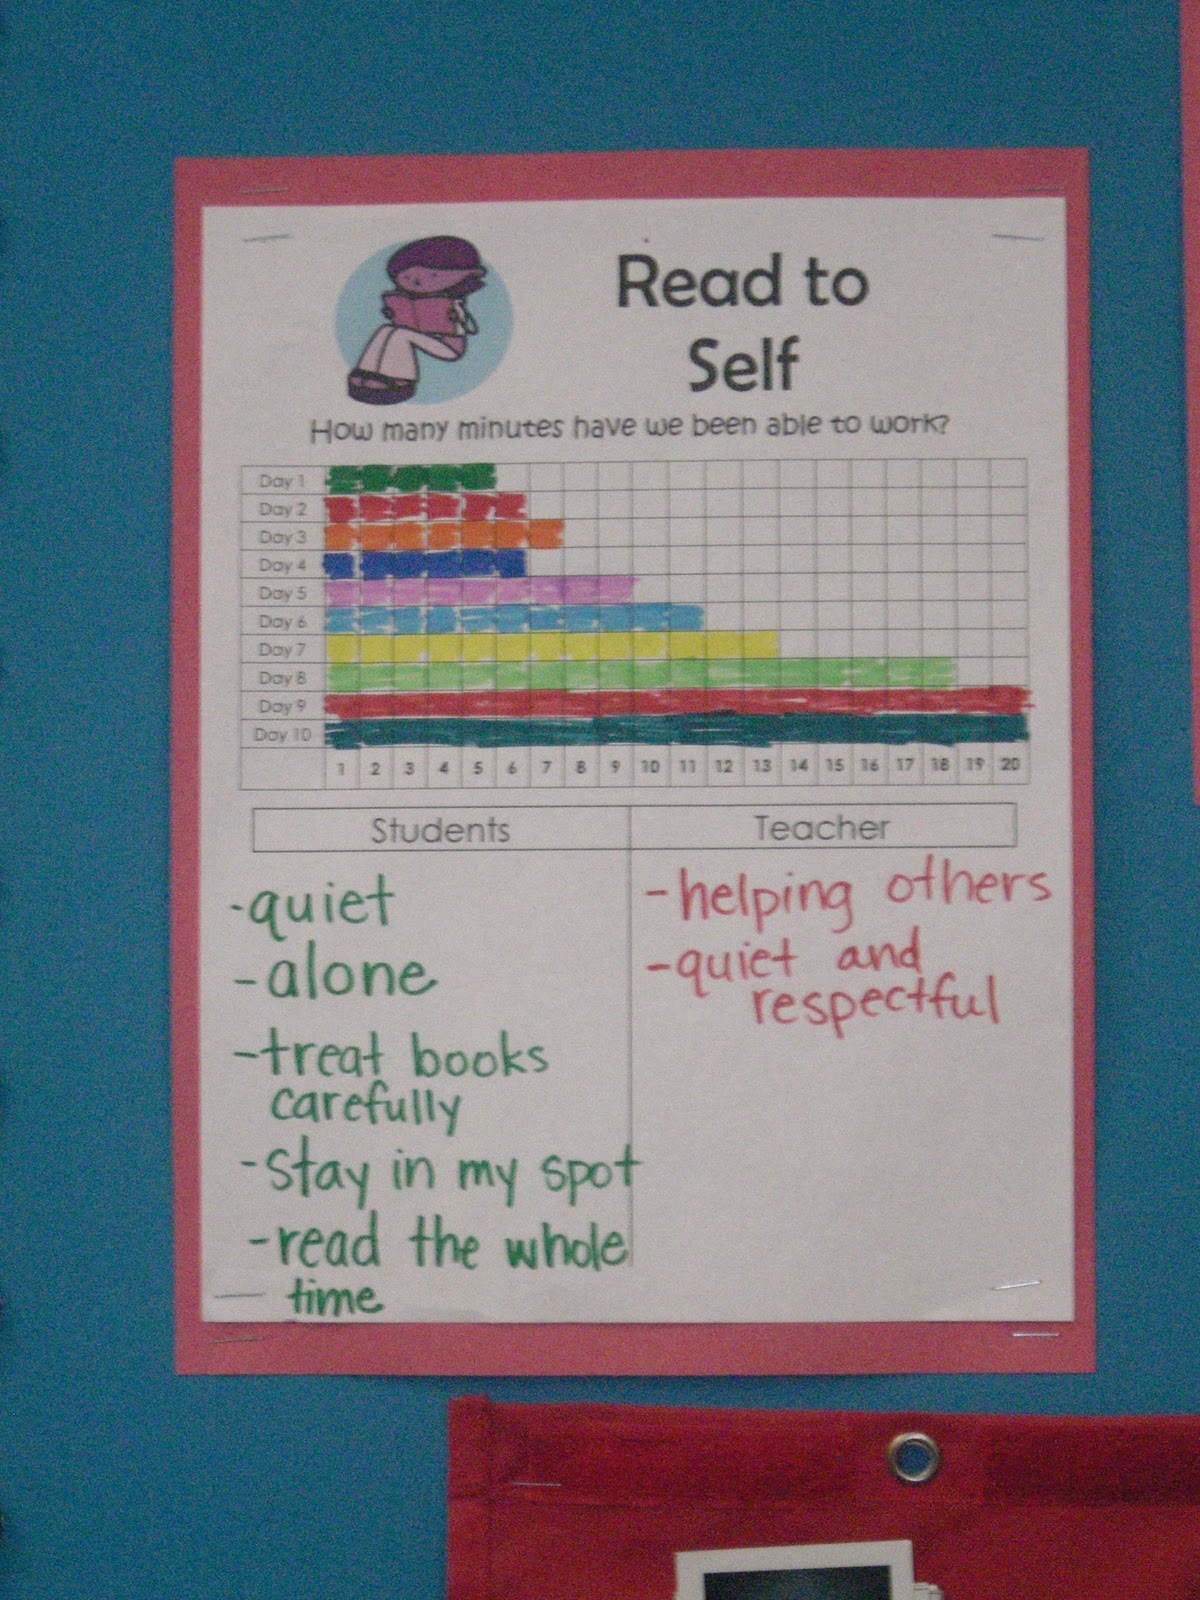 Read to
Self
How many minutes have we been able to work?
Day 1
Day 2
Day 3
Day 4
Day 5
Day 6
Day 7
Day 8
Day 9
Day 10
1 2 3 4 5 6 7 8 9 10 11 12 13 14 15 16 17 18 19 20
Students
-quiet
-alone
-treat books
carefully
-stay in my spot
-read the whole
time
Teacher
-helping others
-quiet and
respectful